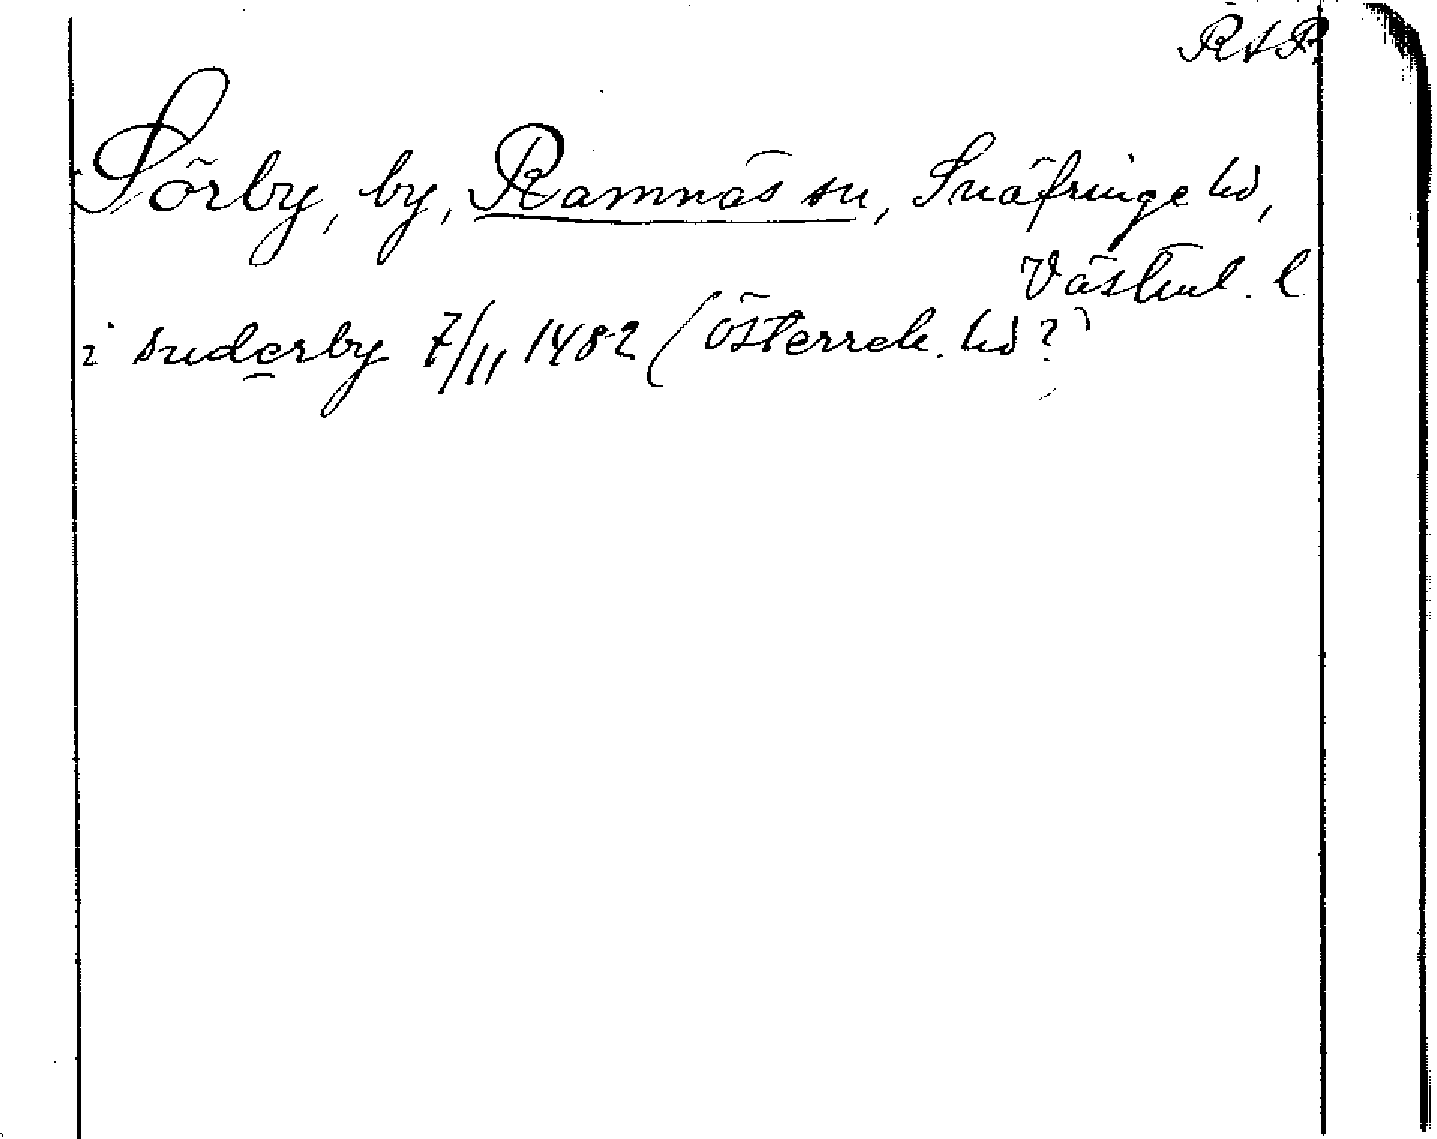 RAP.
Sörby, by, Ramnäs sn, Snäfringe hd,
Västml. l
i suderby 7/11 1482 (Österrek. hd?)